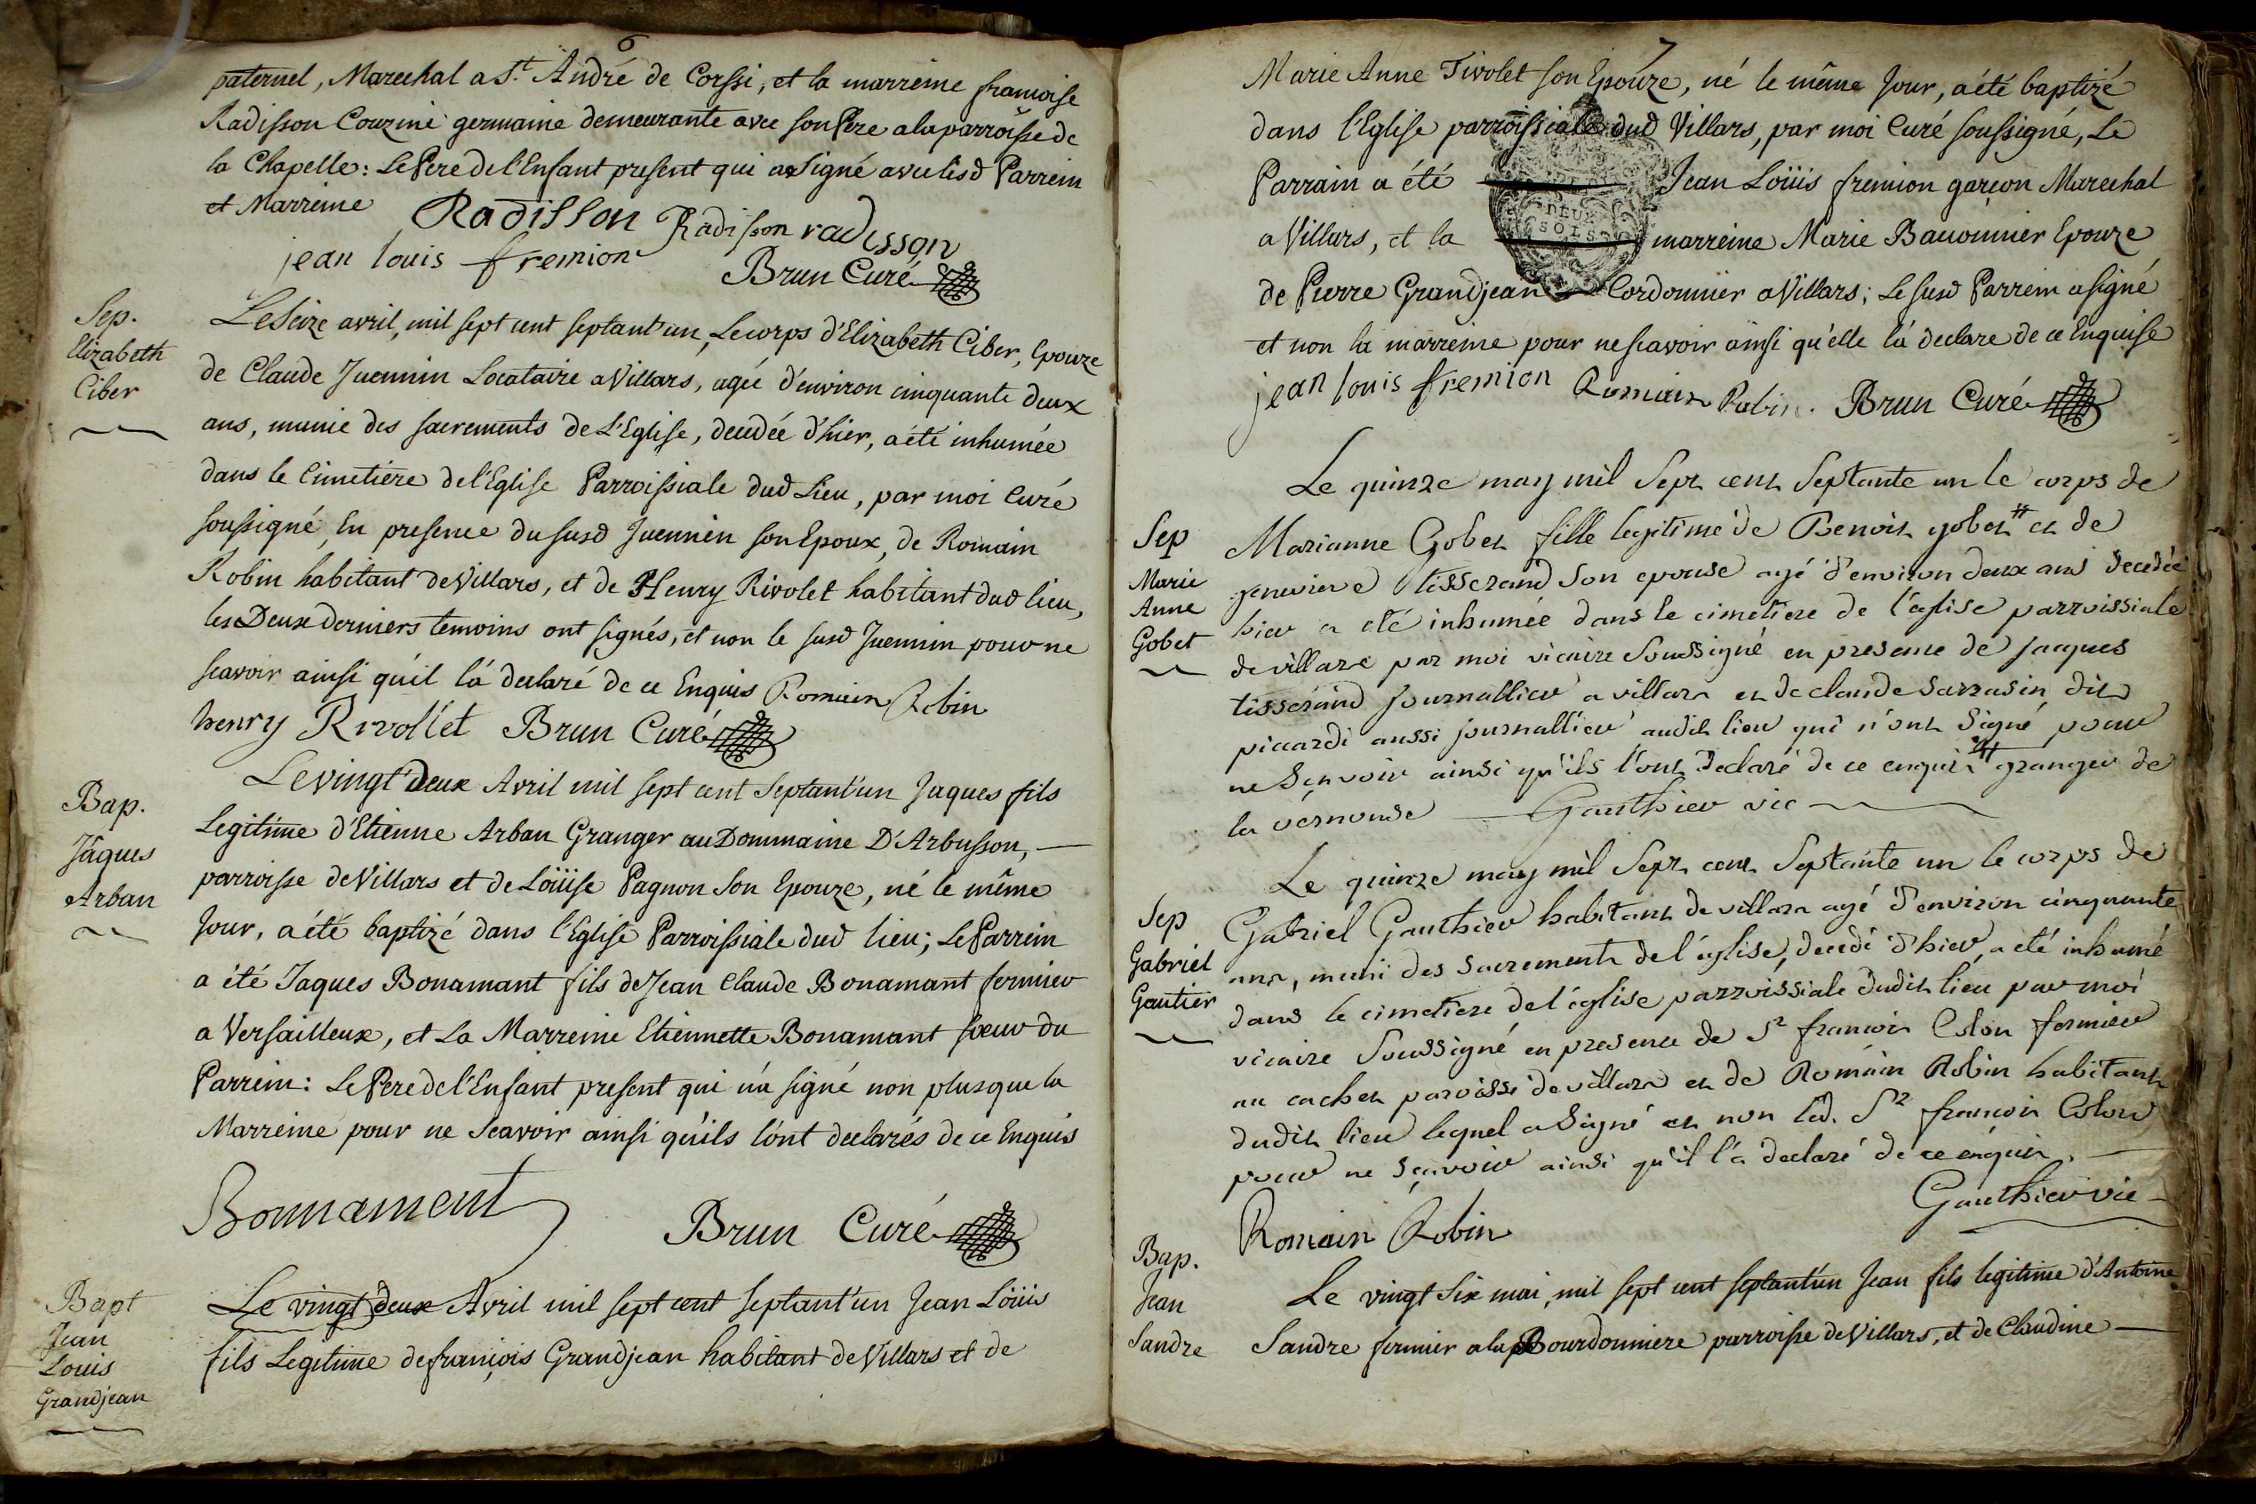 6
paternel, Marechal a St. André de Corssi, et la marreine francoise
Radisson Couzine germaine demeurante avec son Pere a la parroisse de
la Chapelle: Le Pere de l'Enfant present qui a signé avec lesd Parrein
et Marreine Radisson Radisson radisson
jean louis fremion Brun Curé
Sep.
Elizabeth
Ciber
Le Seize avril, mil sept cent septant'un, Le corps d'Elizabeth Ciber, Epouze
de Claude Juennin Locataire a Villars, agée d'environ cinquante deux
ans, munie des sacrements de L'Eglise, decedée d'hier, a été inhumée
dans le Cimetiere de l'Eglise Parroissiale dud Lieu, par moi Curé
soussigné, En presence du susd Juennin son Epoux, de Romain
Robin habitant de Villars, et de Henry Rivolet habitant dud lieu,
les Deux derniers temoins ont signés, et non le susd Juennin pour ne
scavoir ainsi qu'il l'a declaré de ce Enquis Romain Robin
henry Rivollet Brun Curé
Bap.
Jâques
Arban
Le vingt deux Avril mil sept cent Septant'un Jaques fils
Legitime d'Etienne Arban Granger au Dommaine D'Arbusson,
parroisse de Villars et de Loüise Pagnon Son Epouze, né le même
Jour, a été baptizé dans l'Eglise Parroissiale dud lieu; Le Parrein
a été Jaques Bonamant fils de Jean Claude Bonamant fermier
a Versailleux, et La Marreine Etiennette Bonamant soeur du
Parrein: Le Pere de l'Enfant present qui n'a signé non plus que la
Marreine pour ne Scavoir ainsi qu'ils l'ont declarés de ce Enquis
Bonnament
Brun Curé
Bapt
Jean
Louis
Grandjean
Le vingt deux Avril mil sept cent septant'un Jean Loüis
fils Legitime de francois Grandjean habitant de Villars et de
7
Marie Anne Tivolet son Epouze, né le même Jour, a été baptizé
dans l'Eglise parroissiale dud Villars, par moi Curé soussigné, Le
Parrain a été Jean Loüis fremion garçon Marechal
a Villars, et la marreine Marie Bauonnier Epouze
de Pierre Grandjean Cordonnier a Villars; Le susd Parrein a signé
et non la marreine pour ne scavoir ainsi qu'elle l'a declare de ce Enquise
DEUX
SOLS
jean louis fremion Romain Robin. Brun Curé
Sep
Marie
Anne
Gobet
Le quinze may mil Sept cent Septante un le corps de
Marianne Gobet fille legitime de Benoit gobet # et de
genevieve tisserand Son epouse agé d'environ deux ans decedée
hier a été inhumée dans le cimetiere de l'église parroissiale
de villars par moi vicaire Soussigné en presence de jacques
tisserand journallier a villars et de claude Sarrasin dit
piccardi aussi journallier audit lieu qui n'ont Signé pour
ne Sçavoir ainsi qu'ils l'ont declaré de ce enquis # granger de
la vernouse Gauthier vic
Sep
Gabriel
Gautier
Le quinze may mil Sept cent Septante un le corps de
Gabriel Gauthier habitant de villars agé d'environ cinquante
ans, muni des Sacrements de l'église, decedé d'hier, a été inhumé
dans le cimetiere de l'église parroissiale dudit lieu par moi
vicaire Soussigné en presence de Sr francois Colon fermier
au cachet paroisse de villars et de Romain Robin habitant
dudit lieu lequel a Signé et non led. Sr francois Colon
pour ne Sçavoir ainsi qu'il l'a declaré de ce enquis.
Gauthier vic
Romain Robin
Bap.
Jean
Sandre
Le vingt Six mai, mil sept cent septant'un Jean fils legitime d'Antoine
Sandre fermier a la Bourdonniere parroisse de Villars, et de Claudine